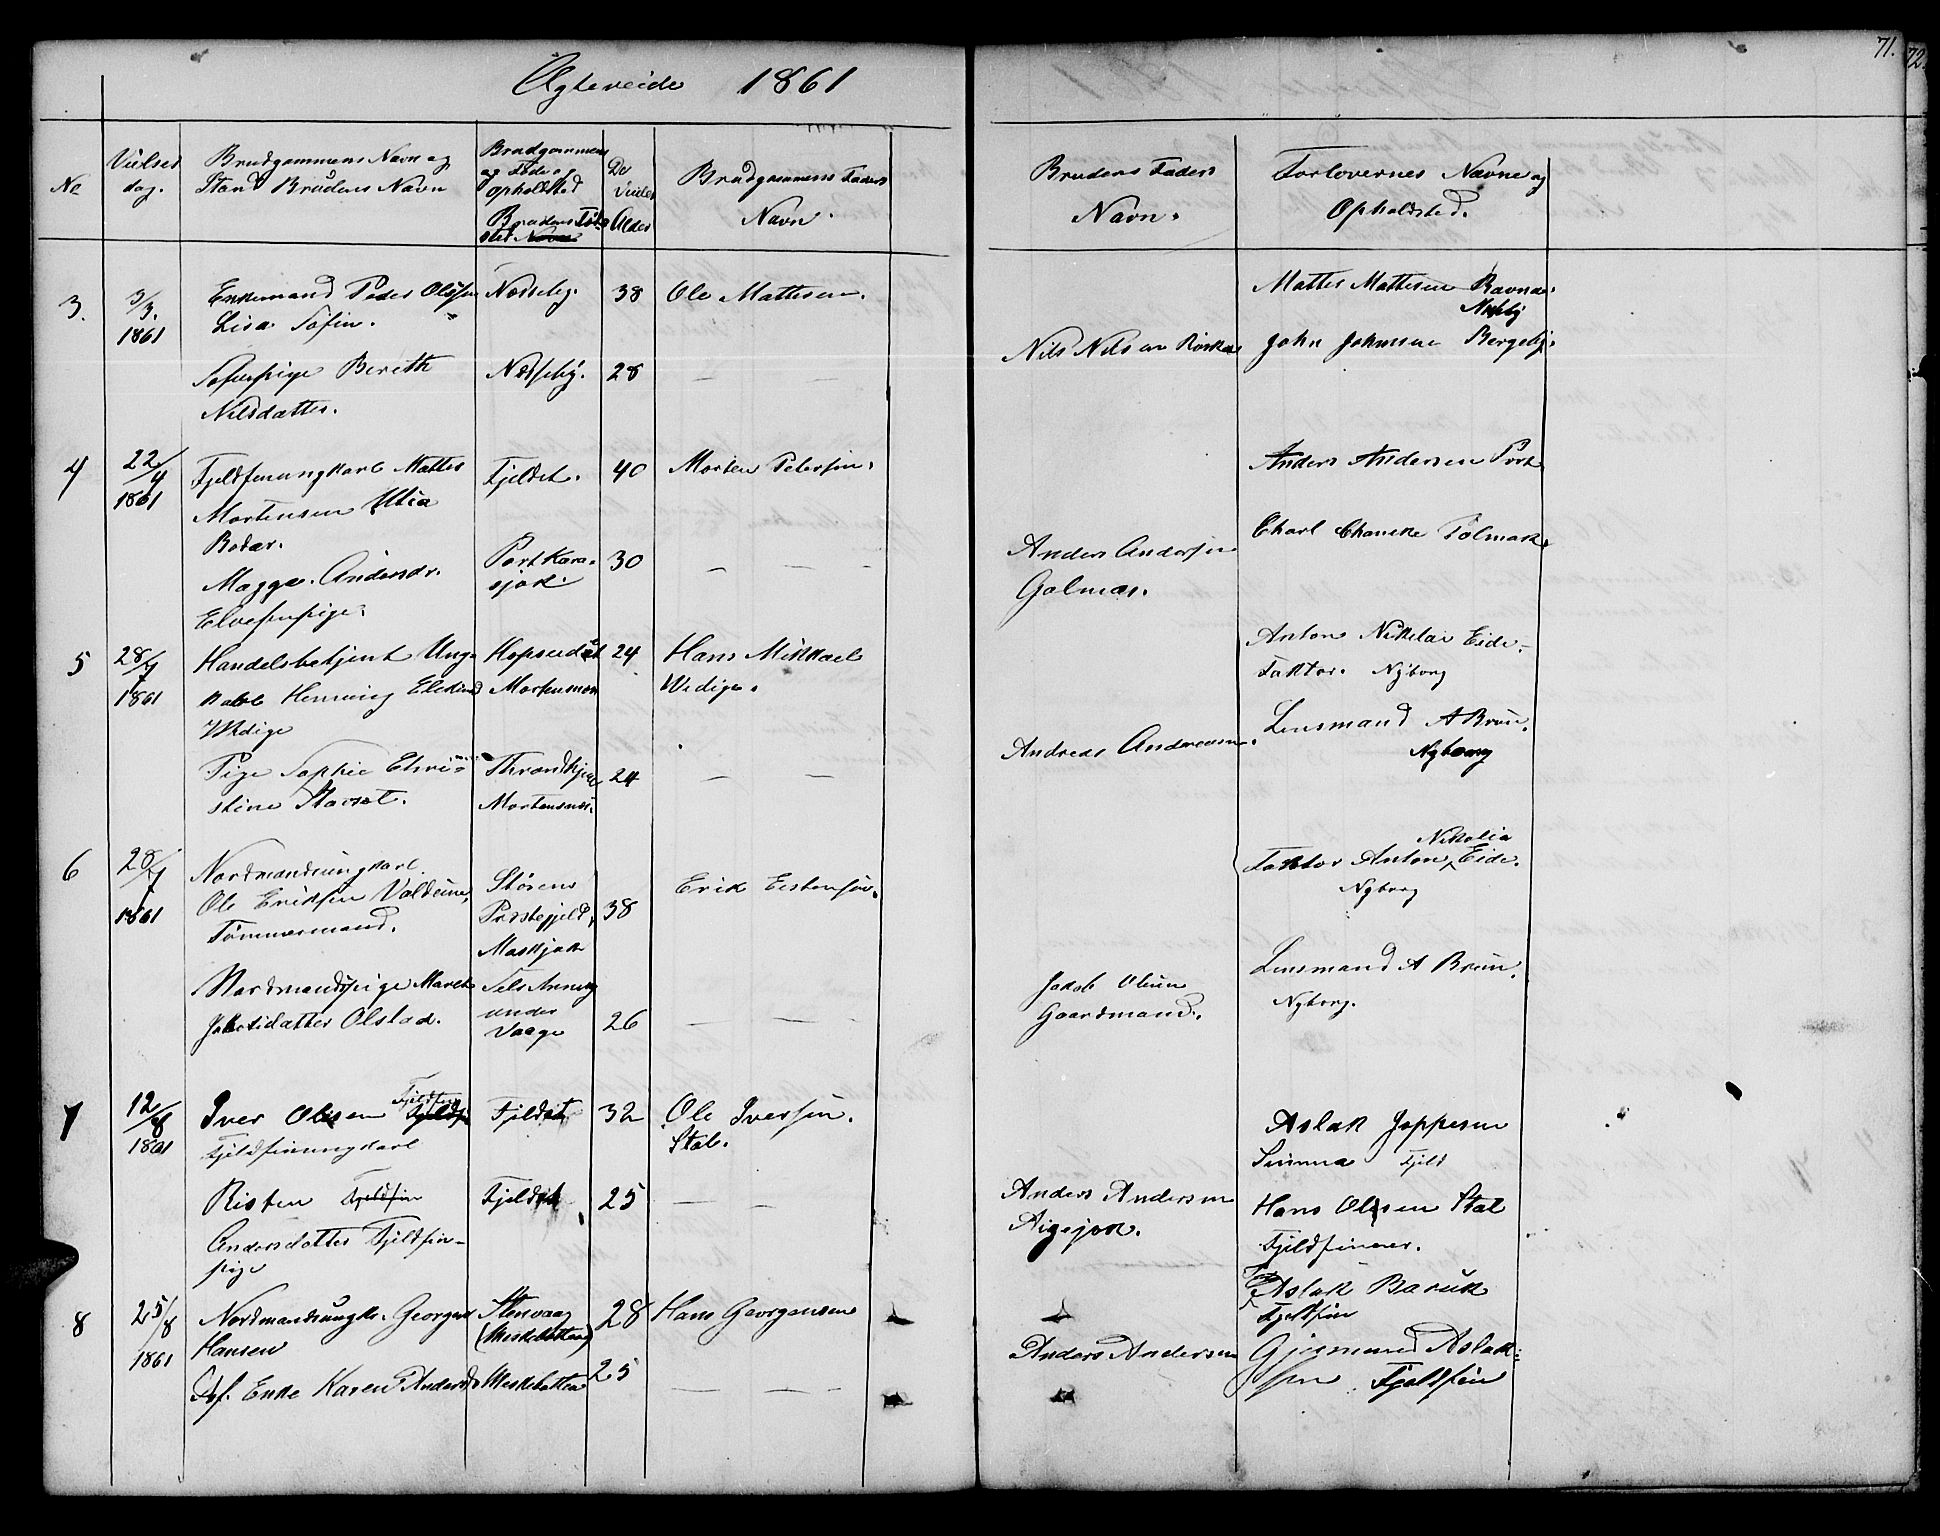 71.
72.
Ægteviede 1861
No
Vielses
dag.
Brudgommens Navn og
Stand Brudens Navn
Brudgommens
og Føde og
Opholdsted
Brudens Føde
sted Navn
De
Viedes
Alder
Brudgommens Faders
Navn.
Brudens Faders
Navn.
Forlovernes Navne og
Opholdsted.
3.
3/3.
1861
Enkemand Peder Olssen
Lisa Søfin.
Nædseby.
38
Ole Mattesen.
Mattes Mattesen Ravna
Næsby
Søfinpige Berith
Nilsdatter.
Nædseby.
28
— —
Nils Nilsen
John Johnsen Bergeby.
4
22/4
1861
Fjeldfinungkarl Mattes
Mortensen Utsa
Fjeldet.
40
Morten Petersen.
Anders Andersen Port
Magga. Andersdr.
Elvefinpige.
Port Kara-
sjok.
30
— — —
Anders Andersen
Golmas.
5
28/7
1861
Handelsbetjent Ung-
karl Henning
Widige
24
Hans Mikkael
Widige.
Anton Nikolai Eide
Faktor. Nyborg
Pige Sophie Chri-
stine
Throndhjem
Mortensnæs.
24
— —
Andreas Andreasen.
Lensmand A Brun.
Nyborg
6
28/7
1861
Nordmandsungkarl.
Ole Eriksen
Tømmermand.
Størens
Præstegjeld,
Maskjok
38
Erik Estensen.
Faktor Anton Nikolia Eide.
Nyborg
Nordmandspige Mareth
Jakobsdatter Olstad.
under
Vaage
26
— — —
Jakob Olsen
Gaardmand.
Lensmand A Brun.
Nyborg.
7
12/8
1861
Iver Olssen Fjeldfin
Fjeldfinungkarl
Fjeldet
32
Ole Iversen.
Stab.
Aslak Joppesen
Fjeld
Risten Fjeldfin
Andersdatter Fjeldfin-
pige
Fjeldet
25
— —
Anders Andersen
Aigejok.
Hans Olsen Stal
Fjeldfinner.
8
25/8
1861
Nordmandsungk. Georg
Hansen
Stenvaag
28
Hans Georgensen
Aslak Baruk
Fjeldfin
Enke Karen Andersd
25
— — —
Anders Andersen
Gjermund Aslak-
sen Fjeldfin